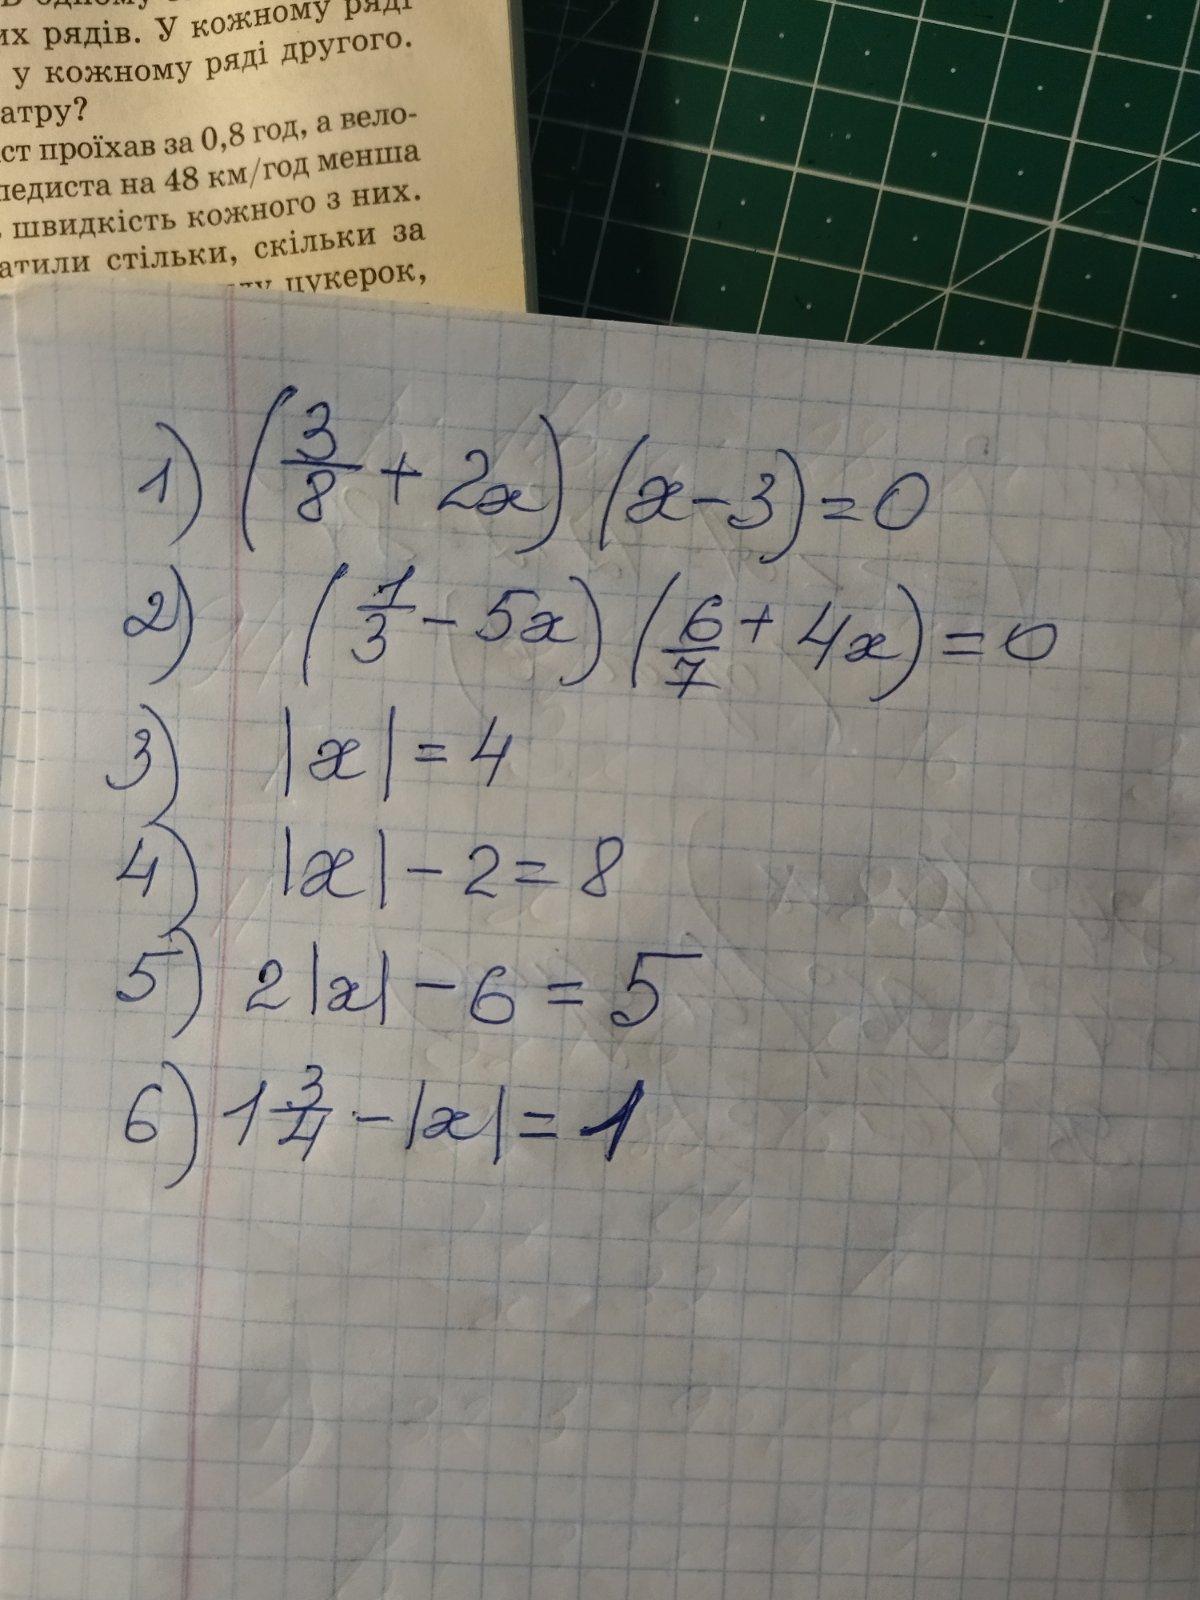 их рядів. У кожному ряді
у кожному ряді другого.
атру?
ст проїхав за 0,8 год, а вело-
педиста на 48 км/год менша
швидкість кожного з них.
атили стільки, скільки за
цукерок,
1) (3/8 + 2x) (x - 3) = 0
2) (1/3 - 5x) (6/7 + 4x) = 0
3) |x| = 4
4) |x| - 2 = 8
5) 2|x| - 6 = 5
6) 1 3/4 - |x| = 1